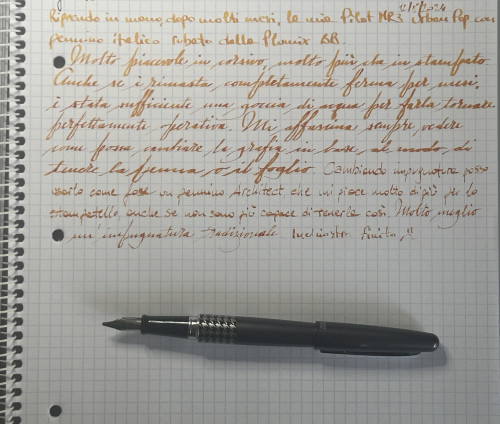 12/5/2024
Riprendo in mano, dopo molti mesi, la mia Pilot MR3 Urban Pop con
pennino italico rubato dalla Plumix BB
Molto piacevole in corsivo, molto più che in stampato.
Anche se è rimasta completamente ferma per mesi,
è stata sufficiente una goccia di acqua per farla tornare
perfettamente operativa. Mi affascina sempre vedere
come possa cambiare la grafia in base al modo di
tenere la penna o il foglio. Cambiando impugnatura posso
usarlo come fosse un pennino Architect, che mi piace molto di più per lo
stampatello, anche se non sono più capace di tenerla così. Molto meglio
un'impugnatura tradizionale. Inchiostro finito